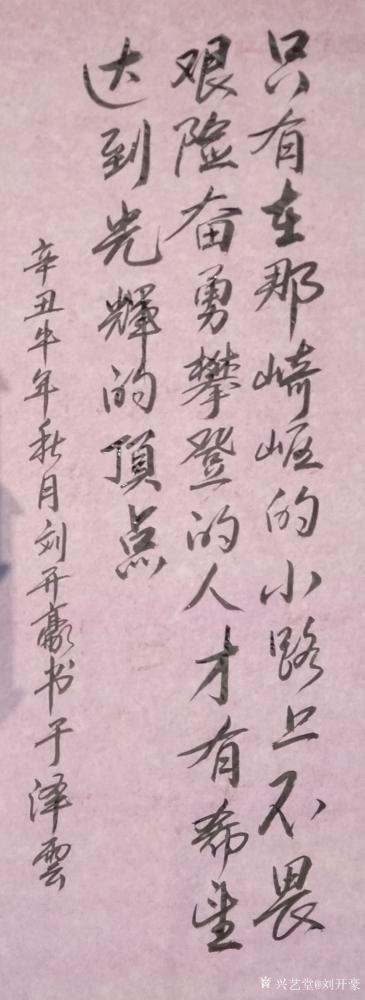 只有在那崎岖的小路上不畏
艰险奋勇攀登的人才有希望
达到光輝的頂点
辛丑牛年秋月刘开豪书于泽雲
兴艺堂@刘开豪